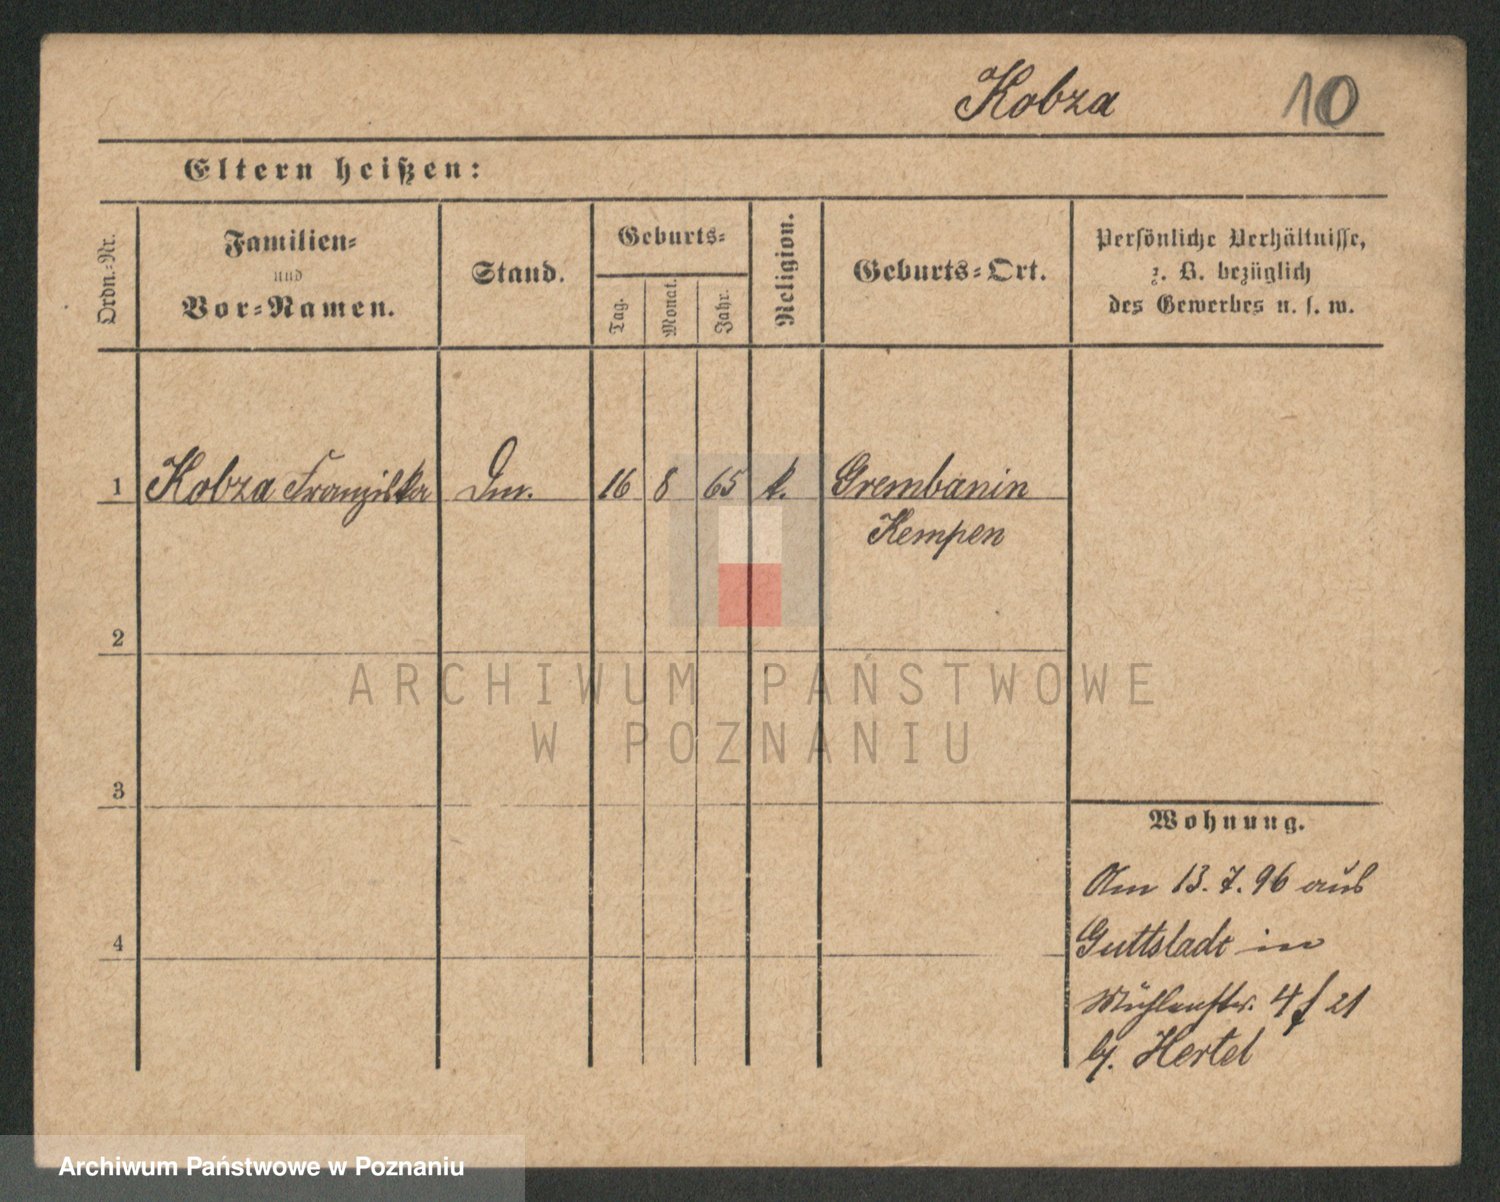 Kobza 10
Eltern heißen:
Ordn.-Nr.
Familien-
und
Vor-Namen.
Stand.
Geburts-
Tag.
Monat.
Jahr.
Religion.
Geburts-Ort.
Persönliche Verhältnisse,
z. B. bezüglich
des Gewerbes u. s. w.
1 Kobza Franziska 16 8 65 k. Grembanin
Kempen
2
3
4
Wohnung.
Am 13.7.96 aus
Guttstadt in
Mühlenstr. 4 21
b/. Hertel
ARCHIWUM PAŃSTWOWE
W POZNANIU
Archiwum Państwowe w Poznaniu